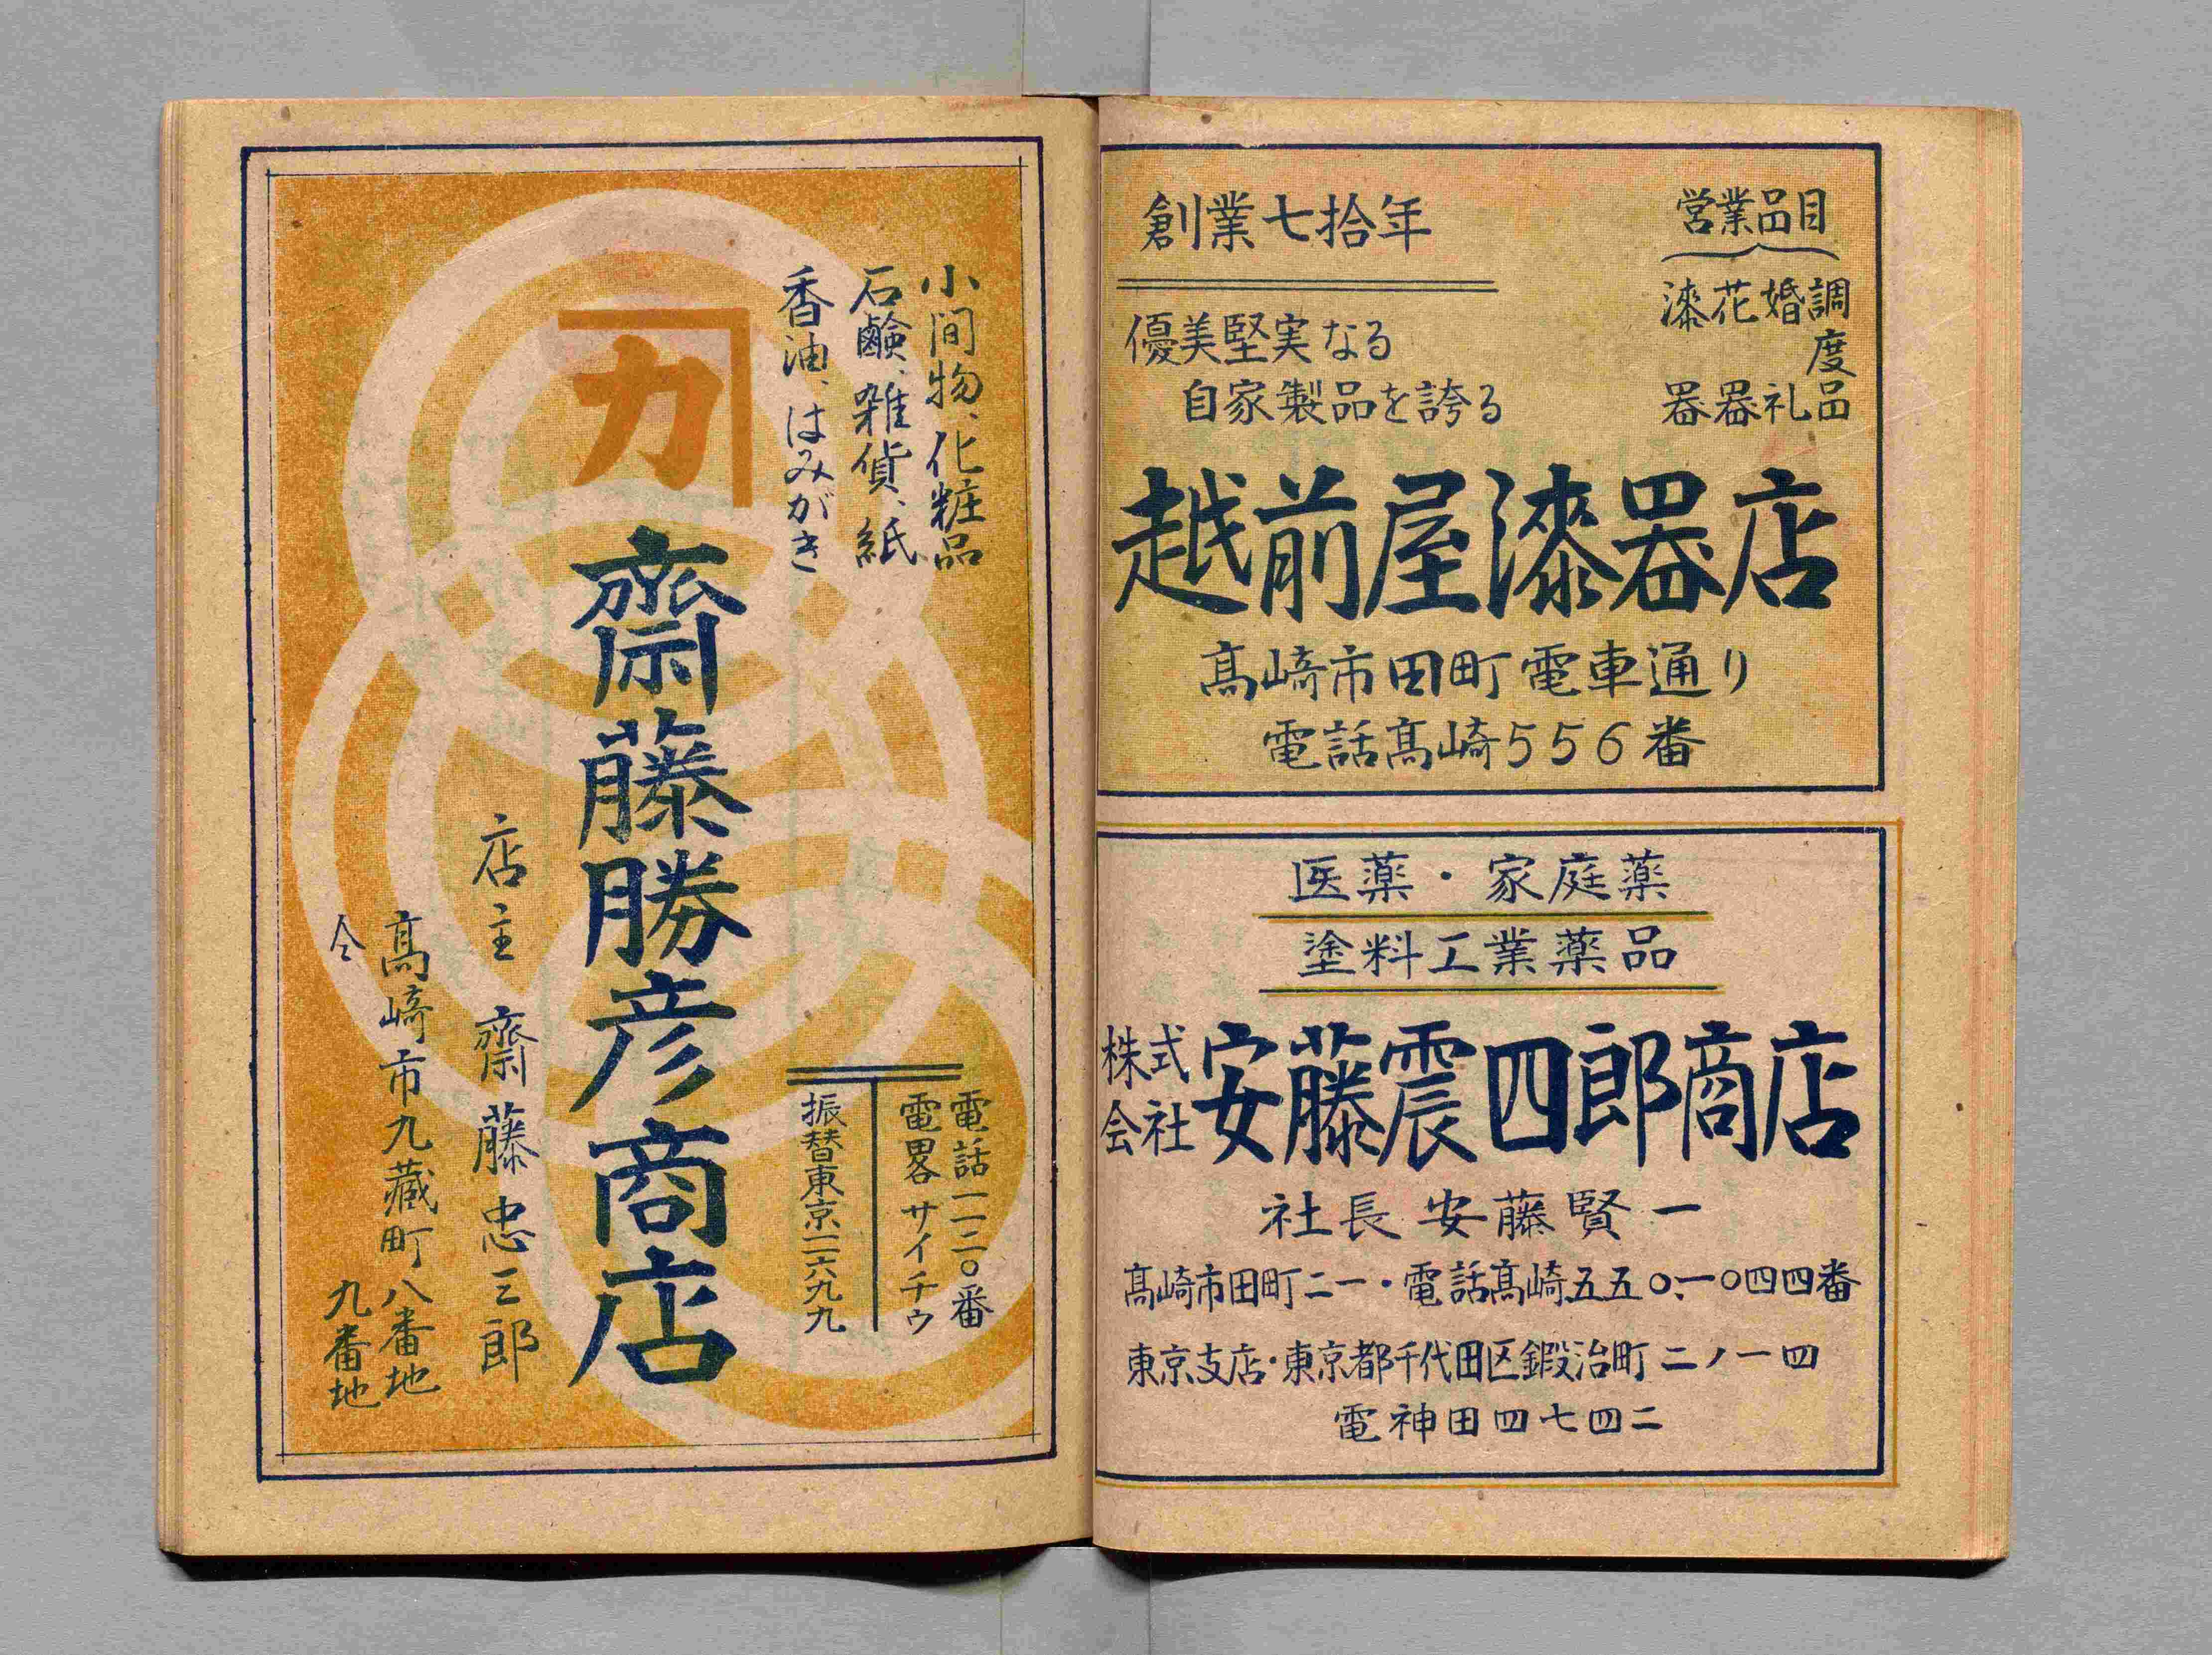 営業品目
調度品
婚礼
花器
漆器
創業七拾年
優美堅実なる
自家製品を誇る
越前屋漆器店
髙崎市田町電車通り
電話髙崎556番
医薬・家庭薬
塗料工業薬品
株式会社安藤震四郎商店
社長 安藤賢一
髙崎市田町二一・電話髙崎五五〇、一〇四四番
東京支店・東京都千代田区鍛治町二ノ一四
電神田四七四二
小間物、化粧品
石鹸、雑貨、紙
香油、はみがき
カ
齋藤勝彦商店
電話一一二〇番
電畧サイチウ
振替東京二六九九
店主 齋藤忠三郎
髙崎市九藏町八番地
仝 九番地